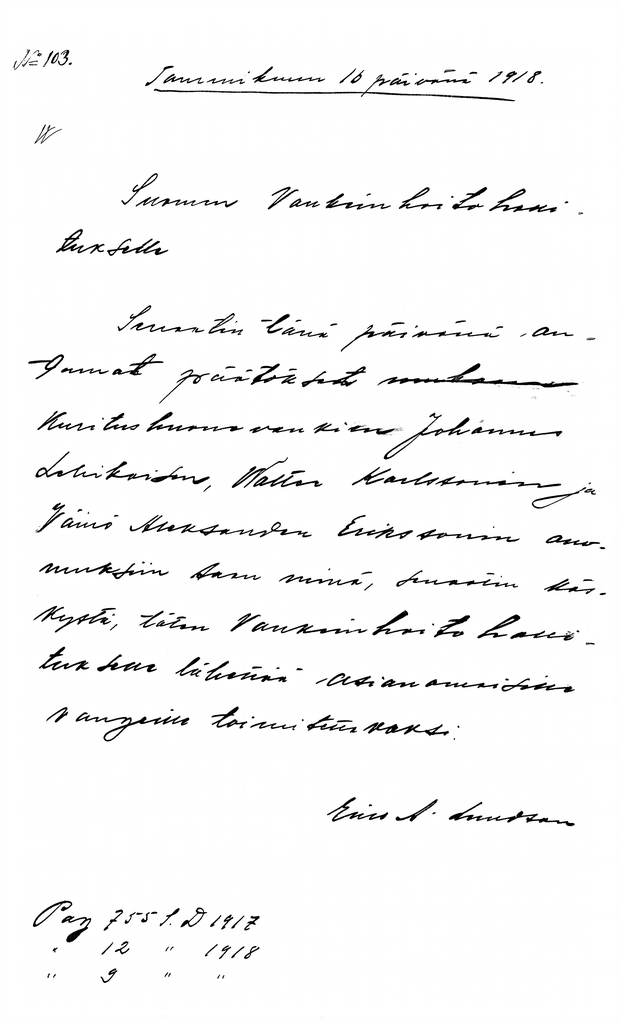 No 103.
Tammikuun 16 päivänä 1918.
Suomen Vankeinhoitohalli-
tukselle
Senaatin tänä päivänä an-
tamat päätökset mukana
Kuritushuonevankien Johannes
Lehikoisen, Walter Karlssonin ja
Väinö Aleksander Erikssonin ano-
muksiin saan minä, senaatin käs-
kystä, täten Vankeinhoitohalli-
tukselle lähettää asianomaisille
vangeille toimitettavaksi.
Eino A.
Pag 755 S. D 1917
" 12 " 1918
" 9 " "